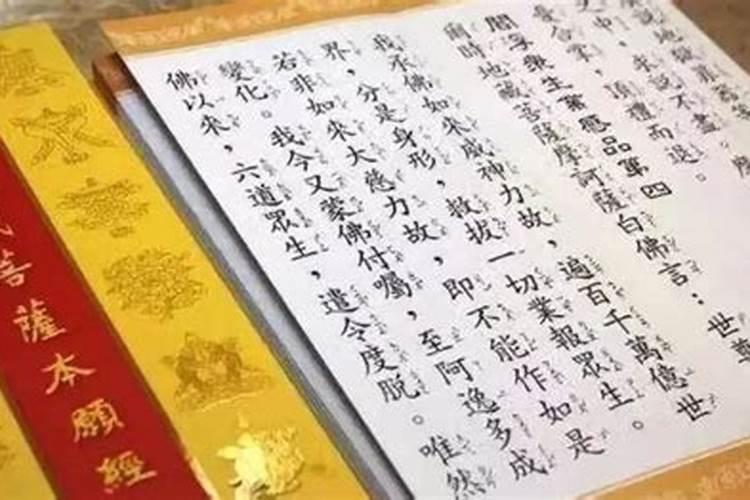 說不盡。
憂合掌，頂禮而退。
閻浮眾生業感品第四
爾時地藏菩薩摩訶薩白佛言：世尊
我承佛如來威神力故，遍百千萬億世
界，分是身形，救拔一切業報眾生。
若非如來大慈力故，即不能作如是
變化。我今又蒙佛付囑，至阿逸多成
佛以來，六道眾生，遣令度脫。唯然
菩薩本願經